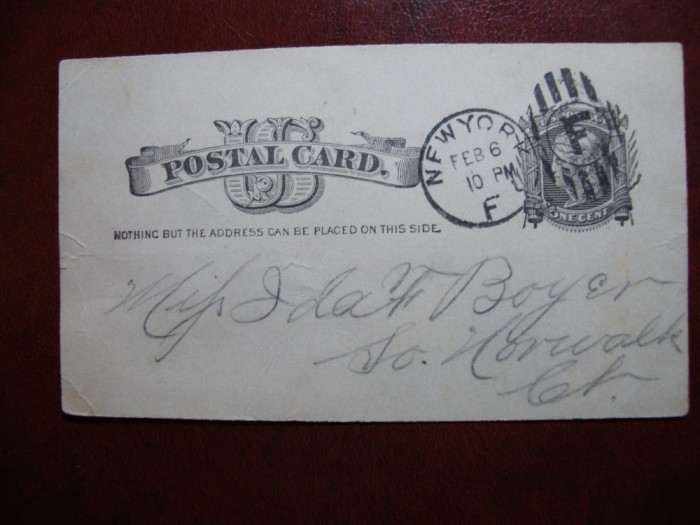 US
POSTAL CARD.
NOTHING BUT THE ADDRESS CAN BE PLACED ON THIS SIDE.
NEW YORK
FEB 6
10 PM
F
F
ONE CENT
Miss Ida F Boyer
So. Norwalk
Ct.